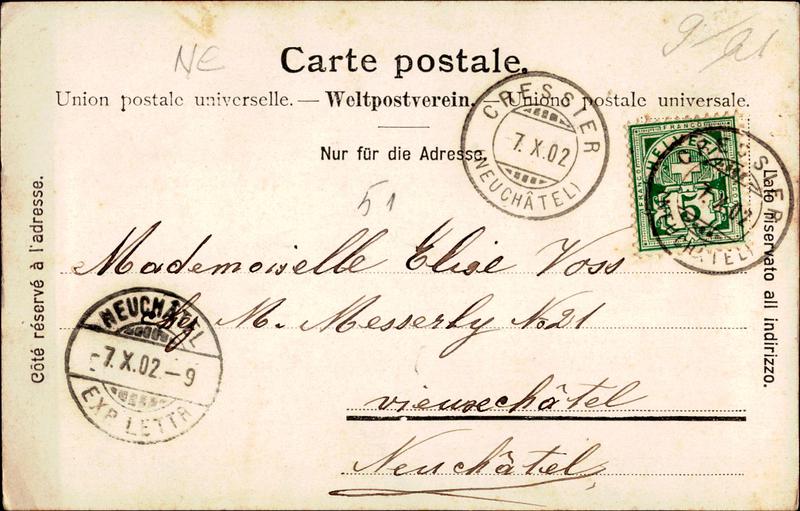 NE
Carte postale.
Union postale universelle. — Weltpostverein. — Unione postale universale.
Nur für die Adresse.
51
CRESSIER
-7.X.02
(NEUCHÂTEL)
FRANCO
HELVETIA
5
Mademoiselle Elise Voss
chez M. Messerly No 21
vieuxchâtel
Neuchâtel
NEUCHÂTEL
-7.X.02.-9
EXP. LETTR.
Côté réservé à l'adresse.
Lato riservato all indirizzo.